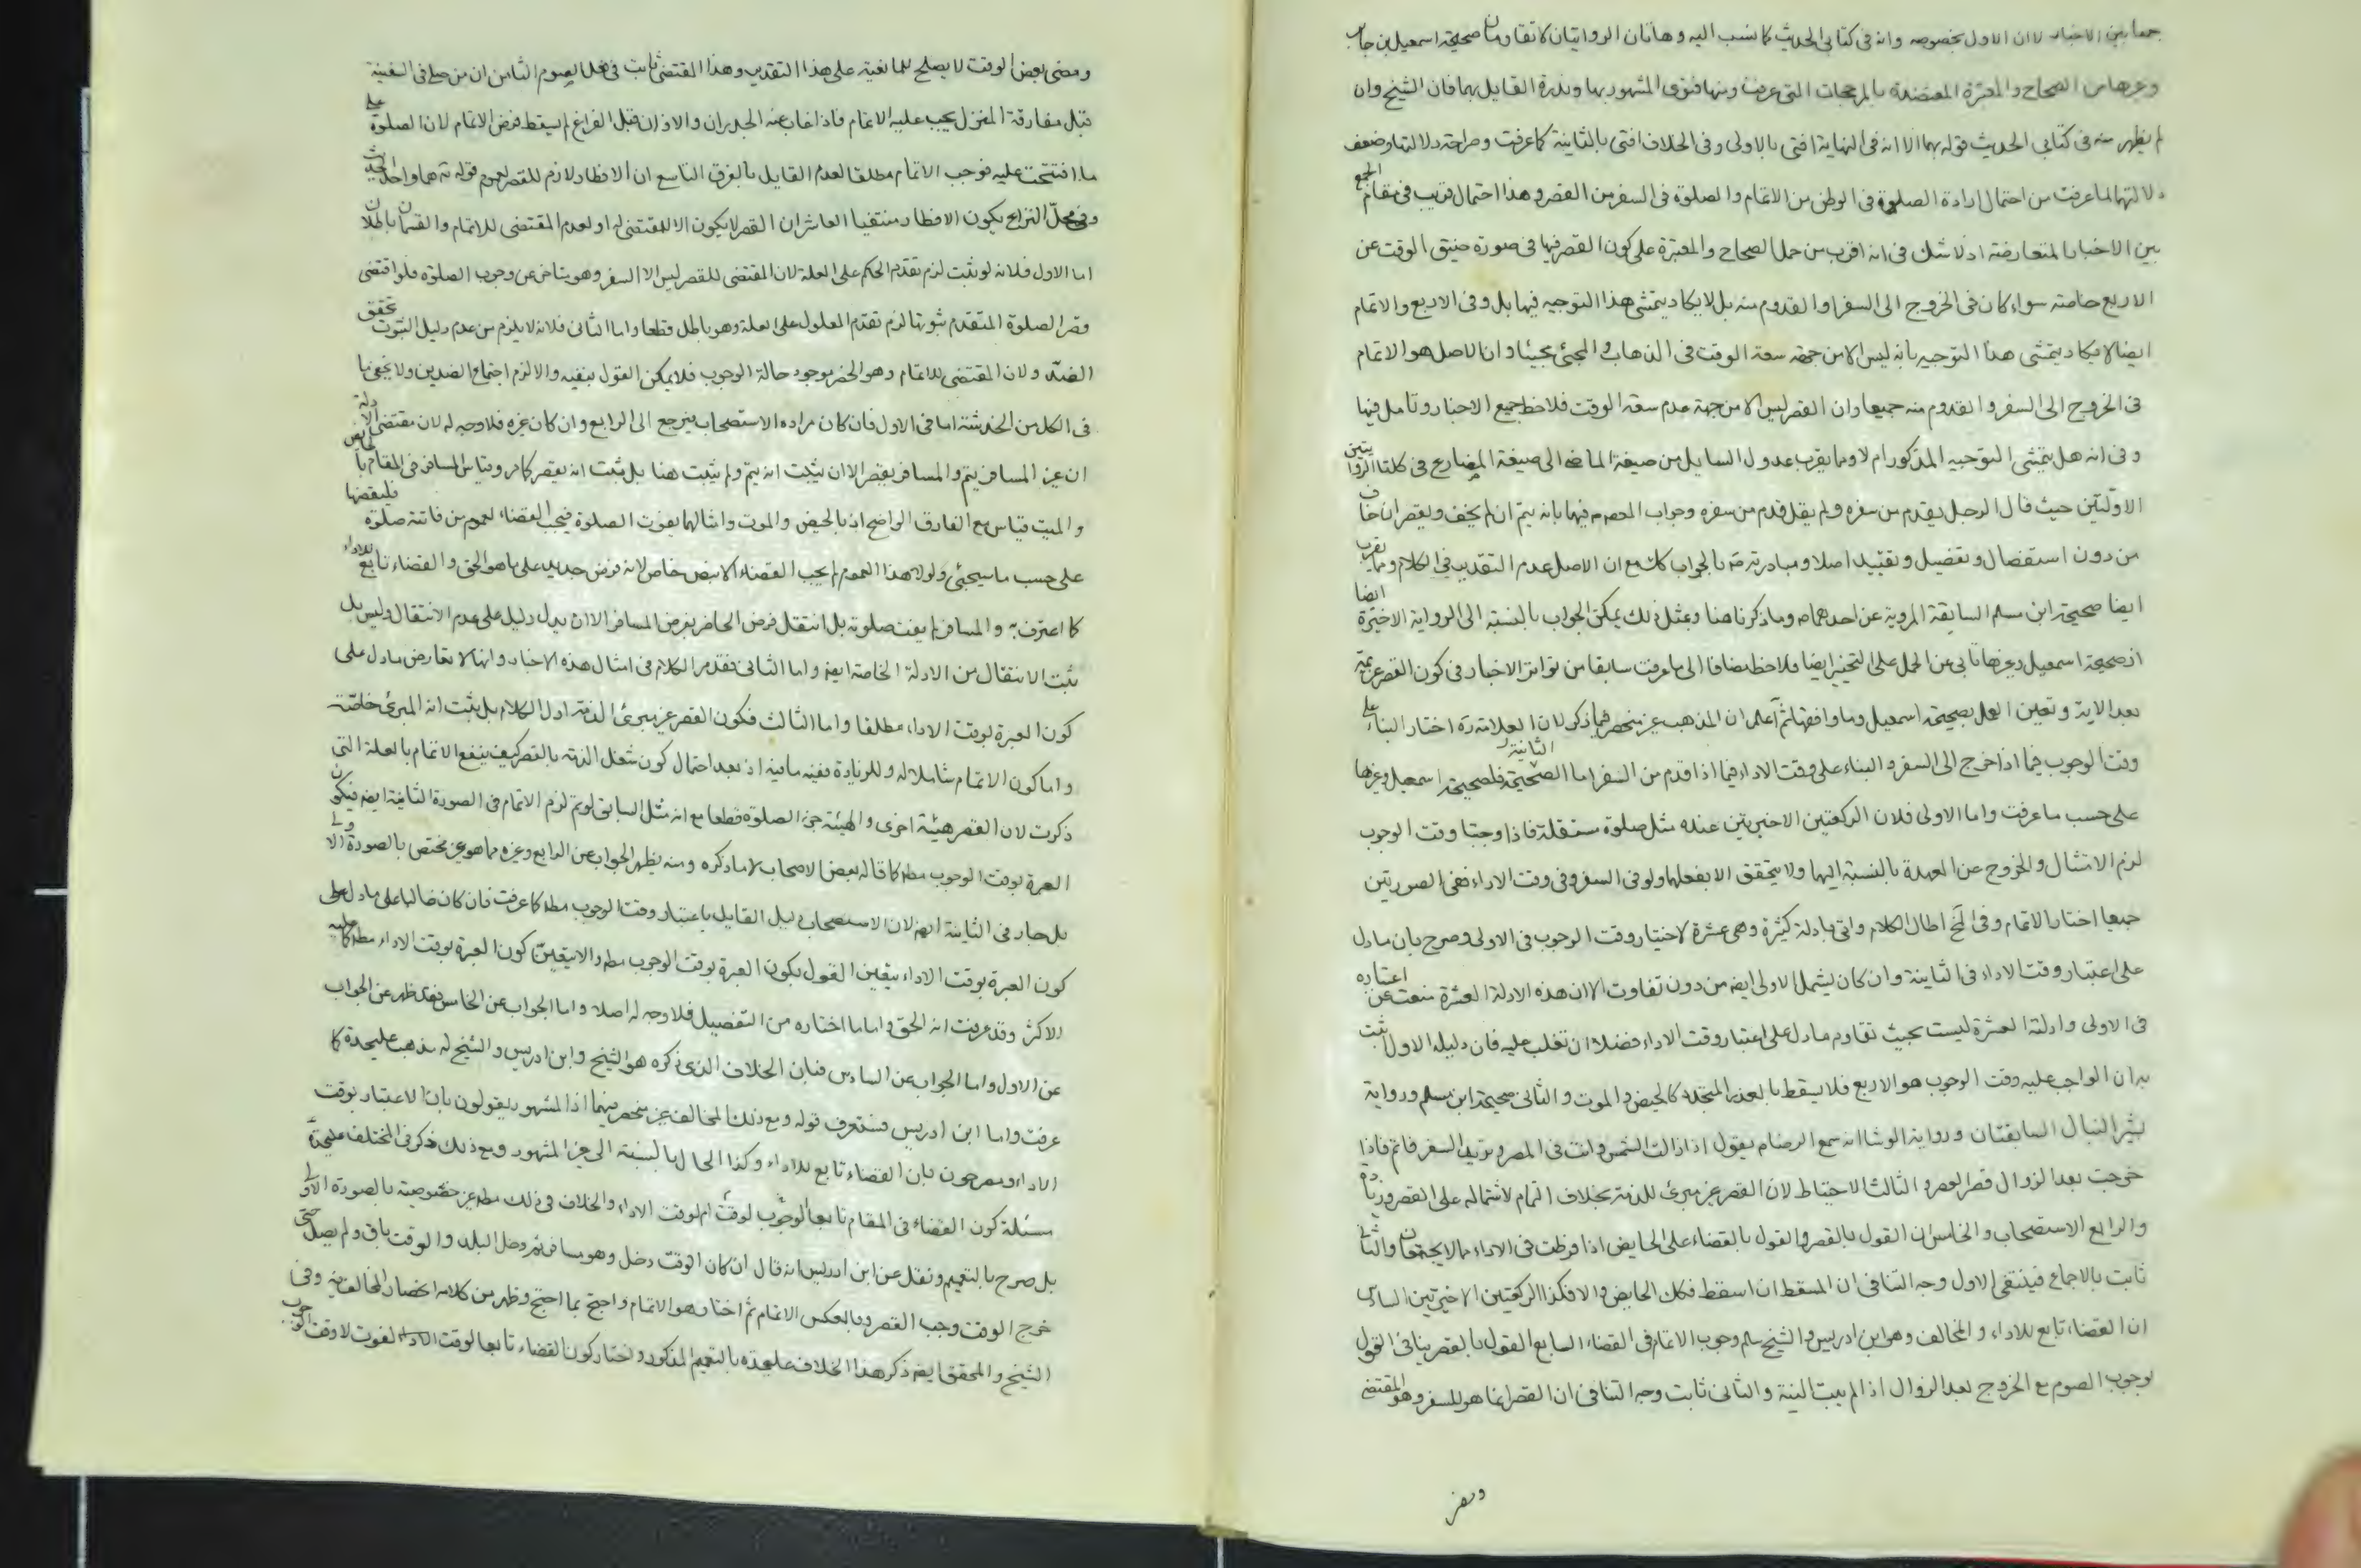 جمعا بين الاخبار لا ان الاول بخصوصه وانه فى كتابى الحديث كما نسب اليه وهاتان الروايتان لا تقاومان صحيحة اسمعيل بن جابر
وغيرها من الصحاح والمعتبرة المعتضدة بالمرجحات التى عرفت ومنها فتوى المشهور بها وندرة القايل بهما فان الشيخ وان
لم يظهر منه فى كتابى الحديث قوله بهما الا انه فى النهاية افتى بالاولى وفى الخلاف افتى بالثانية كما عرفت وصراحة دلالتها وضعف
دلالتهما لما عرفت من احتمال ارادة الصلوة فى الوطن من الاتمام والصلوة فى السفر من القصر وهذا احتمال قريب فى مقام الجمع
بين الاخبار المتعارضة اذ لا شك فى انه اقرب من حمل الصحاح والمعتبرة على كون القصر فيها فى صورة ضيق الوقت عن
الاربع خاصة سواء كان فى الخروج الى السفر او القدوم منه بل لا يكاد يتمشى هذا التوجيه فيها بل وفى الاربع والاتمام
ايضا لا يكاد يتمشى هذا التوجيه بانه ليس الا من جهة سعة الوقت فى الذهاب والمجئ جميعا وان الاصل هو الاتمام
فى الخروج الى السفر والقدوم منه جميعا وان القصر ليس الا من جهة عدم سعة الوقت فلاحظ جميع الاخبار وتامل فيها
وفى انه هل يتمشى التوجيه المذكور ام لا ومما يقرب عدول السايل من صيغة الماضى الى صيغة المضارع فى كلتا الروايتين
الاولتين حيث قال الرجل يقدم من سفره ولم يقل قدم من سفره وجواب المعصوم فيهما بانه يتم ان لم يخف ويقصر ان خاف
من دون استفصال وتفصيل وتقييد اصلا ومبادرته بالجواب كك مع ان الاصل عدم التقدير فى الكلام ومما يقرب
ايضا صحيحة ابن مسلم السابقة المروية عن احدهما وما ذكرنا هنا وبمثل ذلك يمكن الجواب بالنسبة الى الرواية الاخيرة ايضا
اذ صحيحة اسمعيل وغيرها تابى عن الحمل على التخيير ايضا فلاحظ مضافا الى ما عرفت سابقا من تواتر الاخبار فى كون القصر عزيمة
بعد الاية وتعين العمل بصحيحة اسمعيل وما وافقها ثم اعلم ان المذهب غير منحصر فيما ذكر لان العلامة ره اختار البناء على
وقت الوجوب فيما اذا خرج الى السفر والبناء على وقت الاداء فيما اذا قدم من السفر اما الثانية فلصحيحة اسمعيل وغيرها
على حسب ما عرفت واما الاولى فلان الركعتين الاخيرتين عنده مثل صلوة مستقلة فاذا وجبتا وقت الوجوب
لزم الامتثال والخروج عن العهدة بالنسبة اليها ولا يتحقق الا بفعلها ولو فى السفر وفى وقت الاداء ففى الصورتين
جميعا اختار الاتمام وفى لخ اطال الكلام واتى بادلة كثيرة وهى عشرة لاختيار وقت الوجوب فى الاولى وصرح بان ما دل
على اعتبار وقت الاداء فى الثانية وان كان يشمل الاولى ايضا من دون تفاوت الا ان هذه الادلة العشرة منعت عن اعتباره
فى الاولى وادلته العشرة ليست بحيث تقاوم ما دل على اعتبار وقت الاداء فضلا ان تغلب عليه فان دليله الاول ثبت
به ان الواجب عليه وقت الوجوب هو الاربع فلا يسقط بالعذر المتجدد كالحيض والموت والثانى صحيحة ابن مسلم ورواية
بشير النبال السابقتان ورواية الوشا انه سمع الرضا يقول اذا زالت الشمس وانت فى المصر وتريد السفر فاتم فاذا
خرجت بعد الزوال قصر العصر والثالث الاحتياط لان القصر غير مبرئ للذمة بخلاف التمام لاشتماله على القصر وزيادة
والرابع الاستصحاب والخامس ان القول بالقصر والقول بالقضاء على الحايض اذا فرطت فى الاداء مما لا يجتمعان والثانى
ثابت بالاجماع فينتفى الاول وجه التنافى ان المسقط ان اسقط فكك الحايض والا فكذا الركعتين الاخيرتين السادس
ان القضاء تابع للاداء والمخالف وهو ابن ادريس والشيخ سلم وجوب الاتمام فى القضاء السابع القول بالقصر ينافى القول
بوجوب الصوم مع الخروج بعد الزوال اذا لم يبيت النية والثانى ثابت وجه التنافى ان القصر انما هو للسفر وهو المقتضى
ومضى بعض الوقت لا يصلح للمانعية على هذا التقدير وهذا المقتضى ثابت فى الصوم الثامن ان من صلى فى السفينة
قبل مفارقة المنزل يجب عليه الاتمام فاذا غاب عنه الجدران والاذان قبل الفراغ لم يسقط فرض الاتمام لان الصلوة على
ما افتتحت عليه فوجب الاتمام مطلقا لعدم القايل بالفرق التاسع ان الافطار لازم للقصر لعموم قوله هما واحد الحديث
وفى محل النزاع يكون الافطار منتفيا العاشر ان القصر لا يكون الا لمقتضى له او لعدم المقتضى للاتمام والقسمان باطلان
اما الاول فلانه لو ثبت لزم تقدم الحكم على العلة لان المقتضى للقصر ليس الا السفر وهو يتاخر عن وجوب الصلوة فلو اقتضى
قصر الصلوة المتقدم ثبوتها لزم تقدم المعلول على العلة وهو باطل قطعا واما الثانى فلانه لا يلزم من عدم دليل الثبوت تحقق
الضد ولان المقتضى للاتمام وهو الحضر موجود حالة الوجوب فلا يمكن القول بنفيه والا لزم اجتماع الضدين ولا يخفى ما
فى الكل من الخدشة اما فى الاول فان كان مراده الاستصحاب فيرجع الى الرابع وان كان غيره فلا وجه له لان مقتضى الادلة
ان غير المسافر يتم والمسافر يقصر الا ان يثبت انه يتم ولم يثبت هنا بل ثبت انه يقصر كما مر وقياس المسافر فى المقام بالحايض
والميت قياس مع الفارق الواضح اذ بالحيض والموت وامثالهما يفوت الصلوة فيجب القضاء لعموم من فاتته صلوة فليقضها
على حسب ما سيجئى ولولا هذا العموم لم يجب القضاء الا بنص خاص لانه فرض جديد على ما هو الحق والقضاء تابع للاداء
كما اعترف به والمسافر لم يفت صلوته بل انتقل فرض الحاضر بفرض المسافر الا ان يدل دليل على عدم الانتقال وليس بل
ثبت الانتقال من الادلة الخاصة ايضا واما الثانى فقد مر الكلام فى امثال هذه الاخبار وانها لا تعارض ما دل على
كون العبرة بوقت الاداء مطلقا واما الثالث فكون القصر غير مبرئ الذمة اول الكلام بل ثبت انه المبرئ خاصة
واما كون الاتمام شاملا له وللزيادة ففيه ما فيه اذ بعد احتمال كون شغل الذمة بالقصر كيف ينفع الاتمام بالعلة التى
ذكرت لان القصر هيئة اخرى والهيئة جزء الصلوة قطعا مع انه مثل السابق لو تم لزم الاتمام فى الصورة الثانية ايضا فيكون
العبرة بوقت الوجوب مطلقا كما قاله بعض الاصحاب لا ما ذكره ومنه يظهر الجواب عن الرابع وغيره مما هو غير مختص بالصورة الاولى
بل جار فى الثانية ايضا لان الاستصحاب دليل القايل باعتبار وقت الوجوب مطلقا كما عرفت فان كان غالبا على ما دل على
كون العبرة بوقت الاداء يتعين القول بكون العبرة بوقت الوجوب مطلقا والا يتعين كون العبرة بوقت الاداء مطلقا كما عليه
الاكثر وقد عرفت انه الحق واما ما اختاره من التفصيل فلا وجه له اصلا واما الجواب عن الخامس فقد ظهر عن الجواب
عن الاول واما الجواب عن السادس فبان الخلاف الذى ذكره هو الشيخ وابن ادريس والشيخ له مذهب عليحدة كما
عرفت واما ابن ادريس فستعرف قوله ومع ذلك المخالف غير منحصر فيهما اذ المشهور يقولون بان الاعتبار بوقت
الاداء ويصرحون بان القضاء تابع للاداء وكذا الحال بالنسبة الى غير المشهور ومع ذلك ذكر فى المختلف عليحدة
مسئلة كون القضاء فى المقام تابعا لوقت الوجوب ام لوقت الاداء والخلاف فى ذلك مطلقا من غير خصوصية بالصورة الاولى
بل صرح بالتعميم ونقل عن ابن ادريس انه قال ان كان الوقت دخل وهو مسافر ثم دخل البلد والوقت باق ولم يصل حتى
خرج الوقت وجب القصر وبالعكس الاتمام ثم اختار هو الاتمام واحتج بما احتج وظهر من كلامه انحصار المخالف فيه وفى
الشيخ والمحقق ايضا ذكر هذا الخلاف عليحدة بالتعميم المذكور واختار كون القضاء تابعا لوقت الفوت لا وقت الوجوب